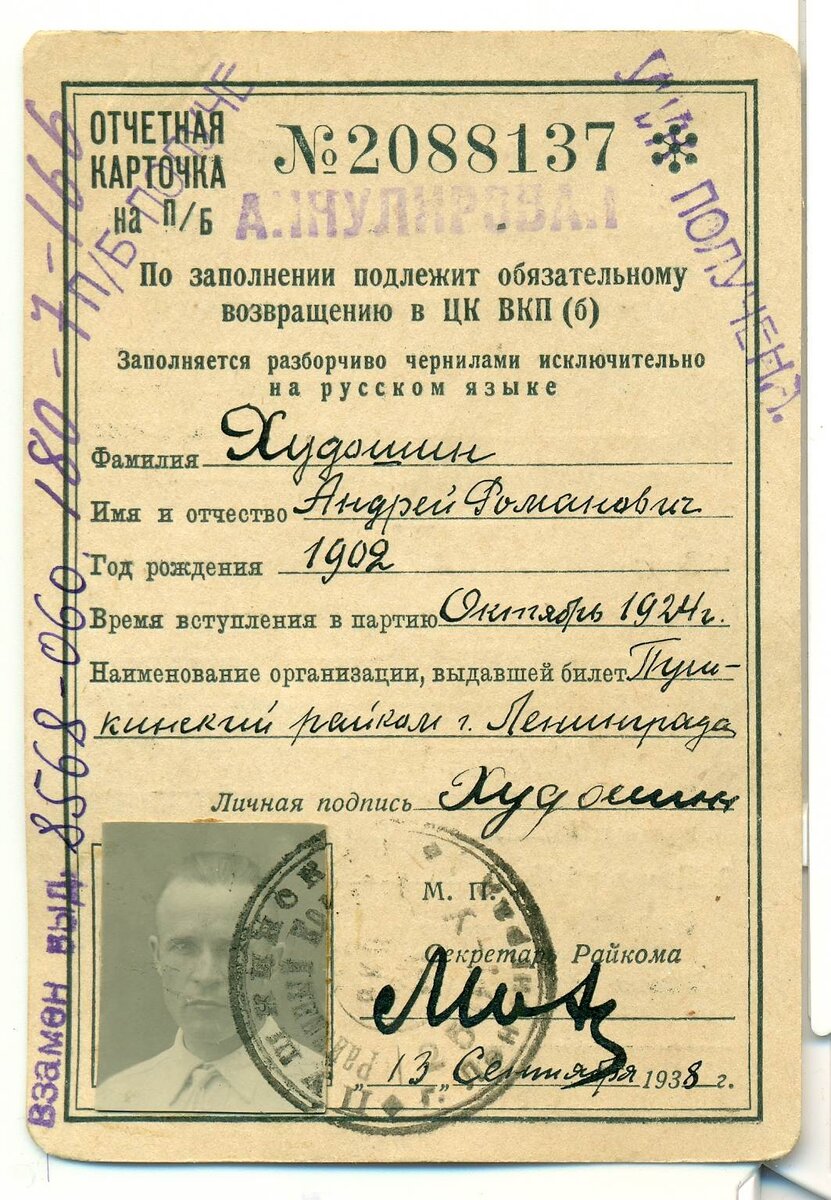 ОТЧЕТНАЯ
КАРТОЧКА
на П/Б
№2088137
АННУЛИРОВАН
По заполнении подлежит обязательному
возвращению в ЦК ВКП (б)
Заполняется разборчиво чернилами исключительно
на русском языке
Фамилия Худошин
Имя и отчество Андрей Романович
Год рождения 1902
Время вступления в партию Октябрь 1924г.
Наименование организации, выдавшей билет Пуш-
кинский райком г. Ленинграда
Личная подпись Худошин
М. П.
Секретарь Райкома
„13„ Сентября 1938 г.
взамен выд. 8568-060. 180-7-166
П/Б ПОЛУЧЕ
ПОЛУЧЕНА.